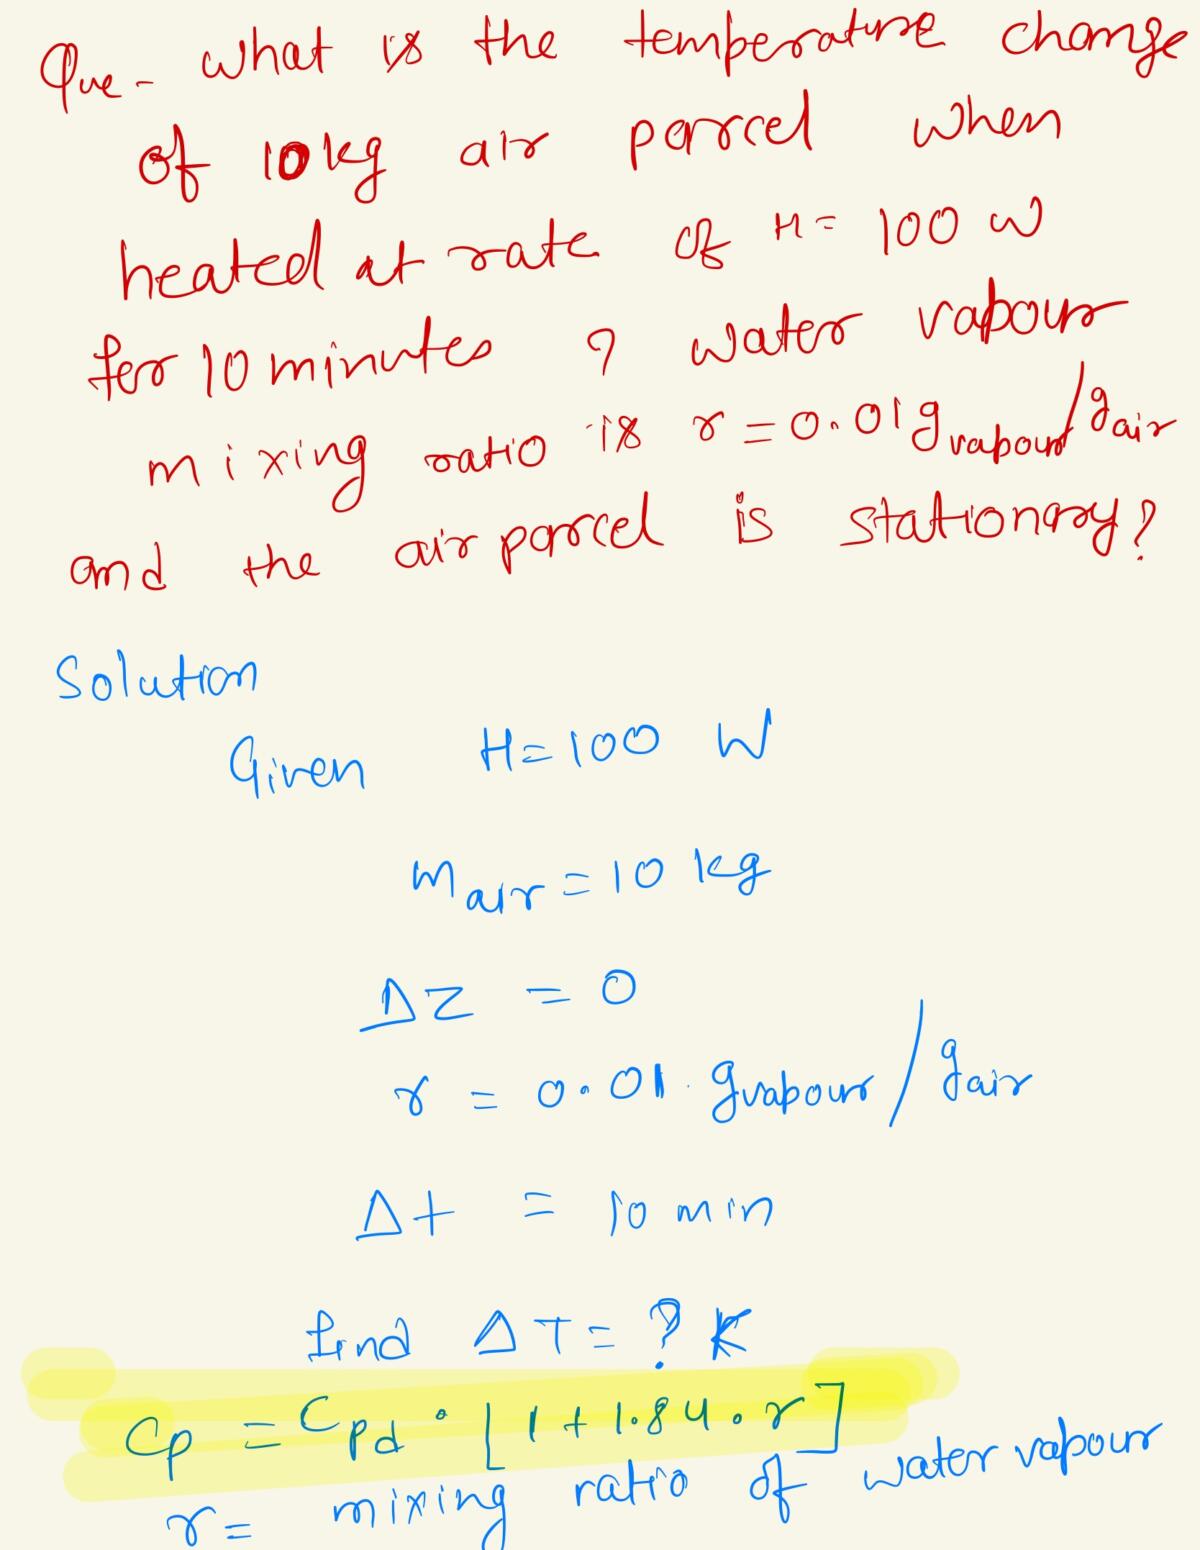 Que - What is the temperature change
of 10kg air parcel when
heated at rate of H = 100 W
for 10 minutes ? water vapour
mixing ratio is r = 0.01 g vapour / g air
and the air parcel is stationary ?
Solution
Given H = 100 W
m air = 10 kg
ΔZ = 0
r = 0.01 g vapour / g air
Δt = 10 min
find ΔT = ? K
Cp = Cpd · [1 + 1.84 · r]
r = mixing ratio of water vapour